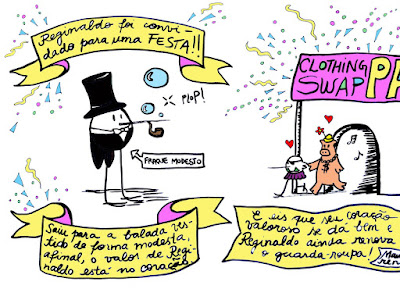 Reginaldo foi convi-
dado para uma FESTA!!
PLOP!
FRAQUE MODESTO
Saiu para a balada ves-
tido de forma modesta,
afinal, o valor de Regi-
naldo está no coração
CLOTHING
SWAP PA
E eis que seu coração
valoroso se dá bem e
Reginaldo ainda renova
o guarda-roupa!